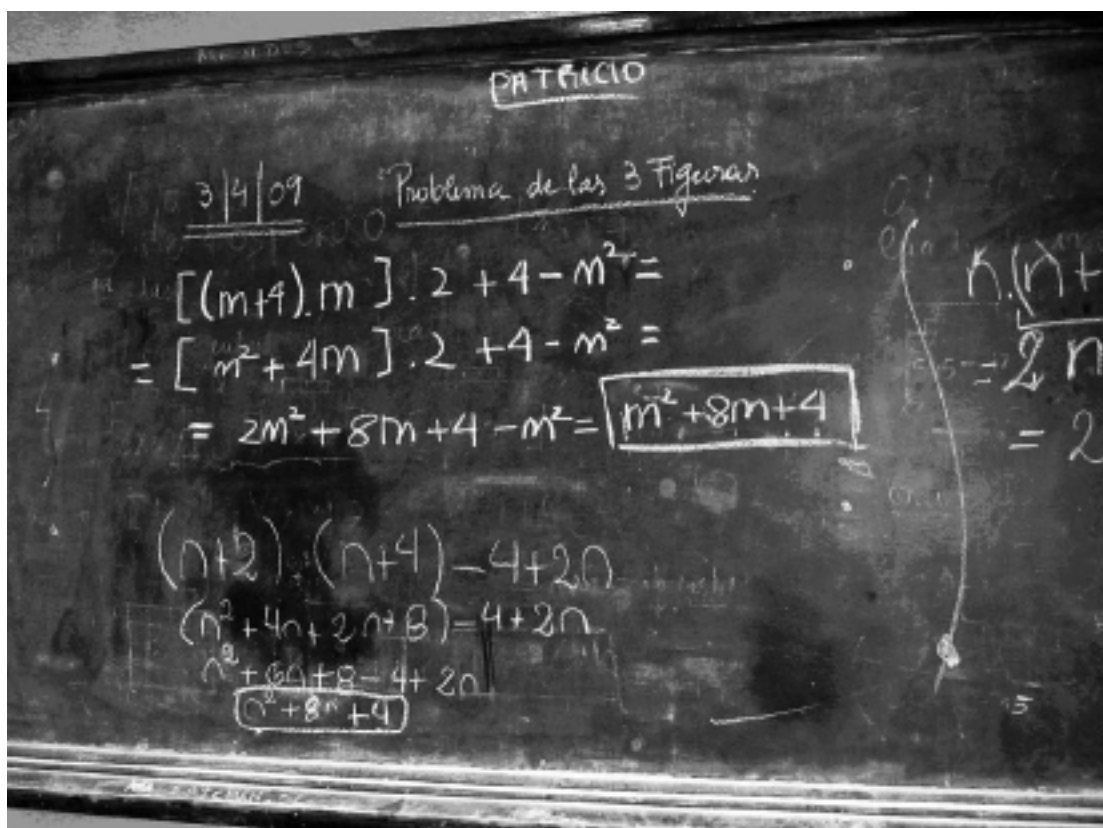 PATRICIO
3|4|09 Problema de las 3 Figuras
[(m+4).m].2+4-m²=
=[m²+4m].2+4-m²=
=2m²+8m+4-m²=m²+8m+4
(n+2).(n+4)-4+2n
(n²+4n+2n+8)-4+2n
n²+6n+8-4+2n
n²+8n+4
n.(n+
=2n
=2